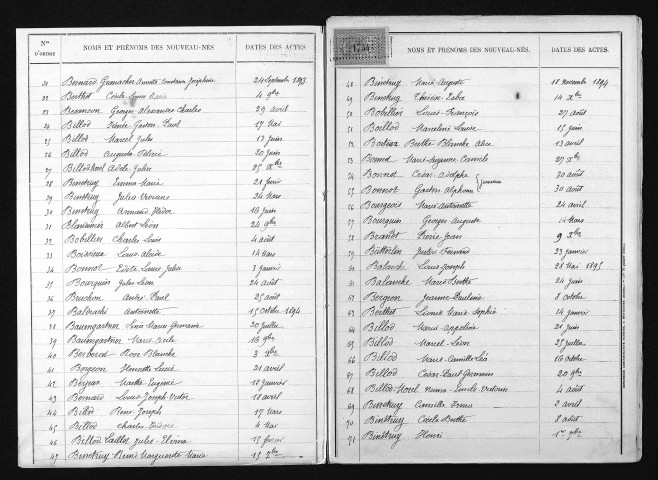 Nos D'ORDRE NOMS ET PRÉNOMS DES NOUVEAU-NÉS DATES DES ACTES
21 Bernard Grenacher Annette Joséphine 24 Septembre 1893
22 Berthet Cécile Louise Marie 4 9bre
23 Besançon Georges Alexandre Charles 29 avril
24 Billod Gaston Paul 17 Mai
25 Billod Marcel Jules 13 Juin
26 Billod Augusta 20 Juin
27 Billod Morel Adèle Julie 25 Xbre
28 Binétruy Emma Marie 21 Janv
29 Binétruy Julia 24 Mars
30 Binétruy Armand 16 Juin
31 Blandinier Albert Léon 24 9bre
32 Bobillier Charles Louis 4 août
33 Boissieux Louis 14 Mars
34 Bonnot Louise Julie 3 Janvier
35 Bourquin Jules Léon 24 août
36 André Paul 25 août
37 Antoinette 15 Octobre 1894
38 Baumgartner Marie Germaine 20 Juillet
39 Baumgartner Marie Cécile 16 9bre
40 Rose Blanche 3 Xbre
41 Bergeon Henriette Lucie 21 avril
42 Marthe Eugénie 12 Janvier
43 Bernard Louis Joseph Victor 18 avril
44 Billod René Joseph 17 Mars
45 Billod Charles Isidore 4 Mai
46 Billod Jules 15 février
47 Binétruy René Marguerite Marie 15 7bre
1754
NOMS ET PRÉNOMS DES NOUVEAU-NÉS. DATES DES ACTES.
48 Binétruy Marie Auguste 18 Novembre 1894
49 Binétruy Thérèse 14 Xbre
50 Bobillier Louis François 27 août
51 Boillod Marceline Laure 15 Juin
52 Berthe Blanche Alice 13 avril
53 Bonnet Marie Suzanne Camille 27 Xbre
54 Bonnot César Adolphe 30 août
55 Bonnot Gaston Alphonse jumeaux 30 août
56 Bourgeois Marie Antoinette 24 avril
57 Bourquin Georges Auguste 14 Mars
58 Brandt Pierre Jean 9 Xbre
59 Butterlin Gaston Fernand 23 Janvier
60 Balanche Louis Joseph 28 Mai 1895
61 Balanche Marie Berthe 24 Juin
62 Bergeon Jeanne Pauline 8 Octobre
63 Berthet Léonie Marie Sophie 14 Janvier
64 Billod Marie Appoline 21 Juin
65 Billod Marcel Léon 25 Juillet
66 Billod Marie Camille Léa 16 Octobre
67 Billod César Paul Germain 20 9bre
68 Billod-Morel Numa Emile Victorin 4 août
69 Binétruy Camille Irma 2 avril
70 Binétruy Cécile Berthe 8 août
71 Binétruy Henri 1er 7bre